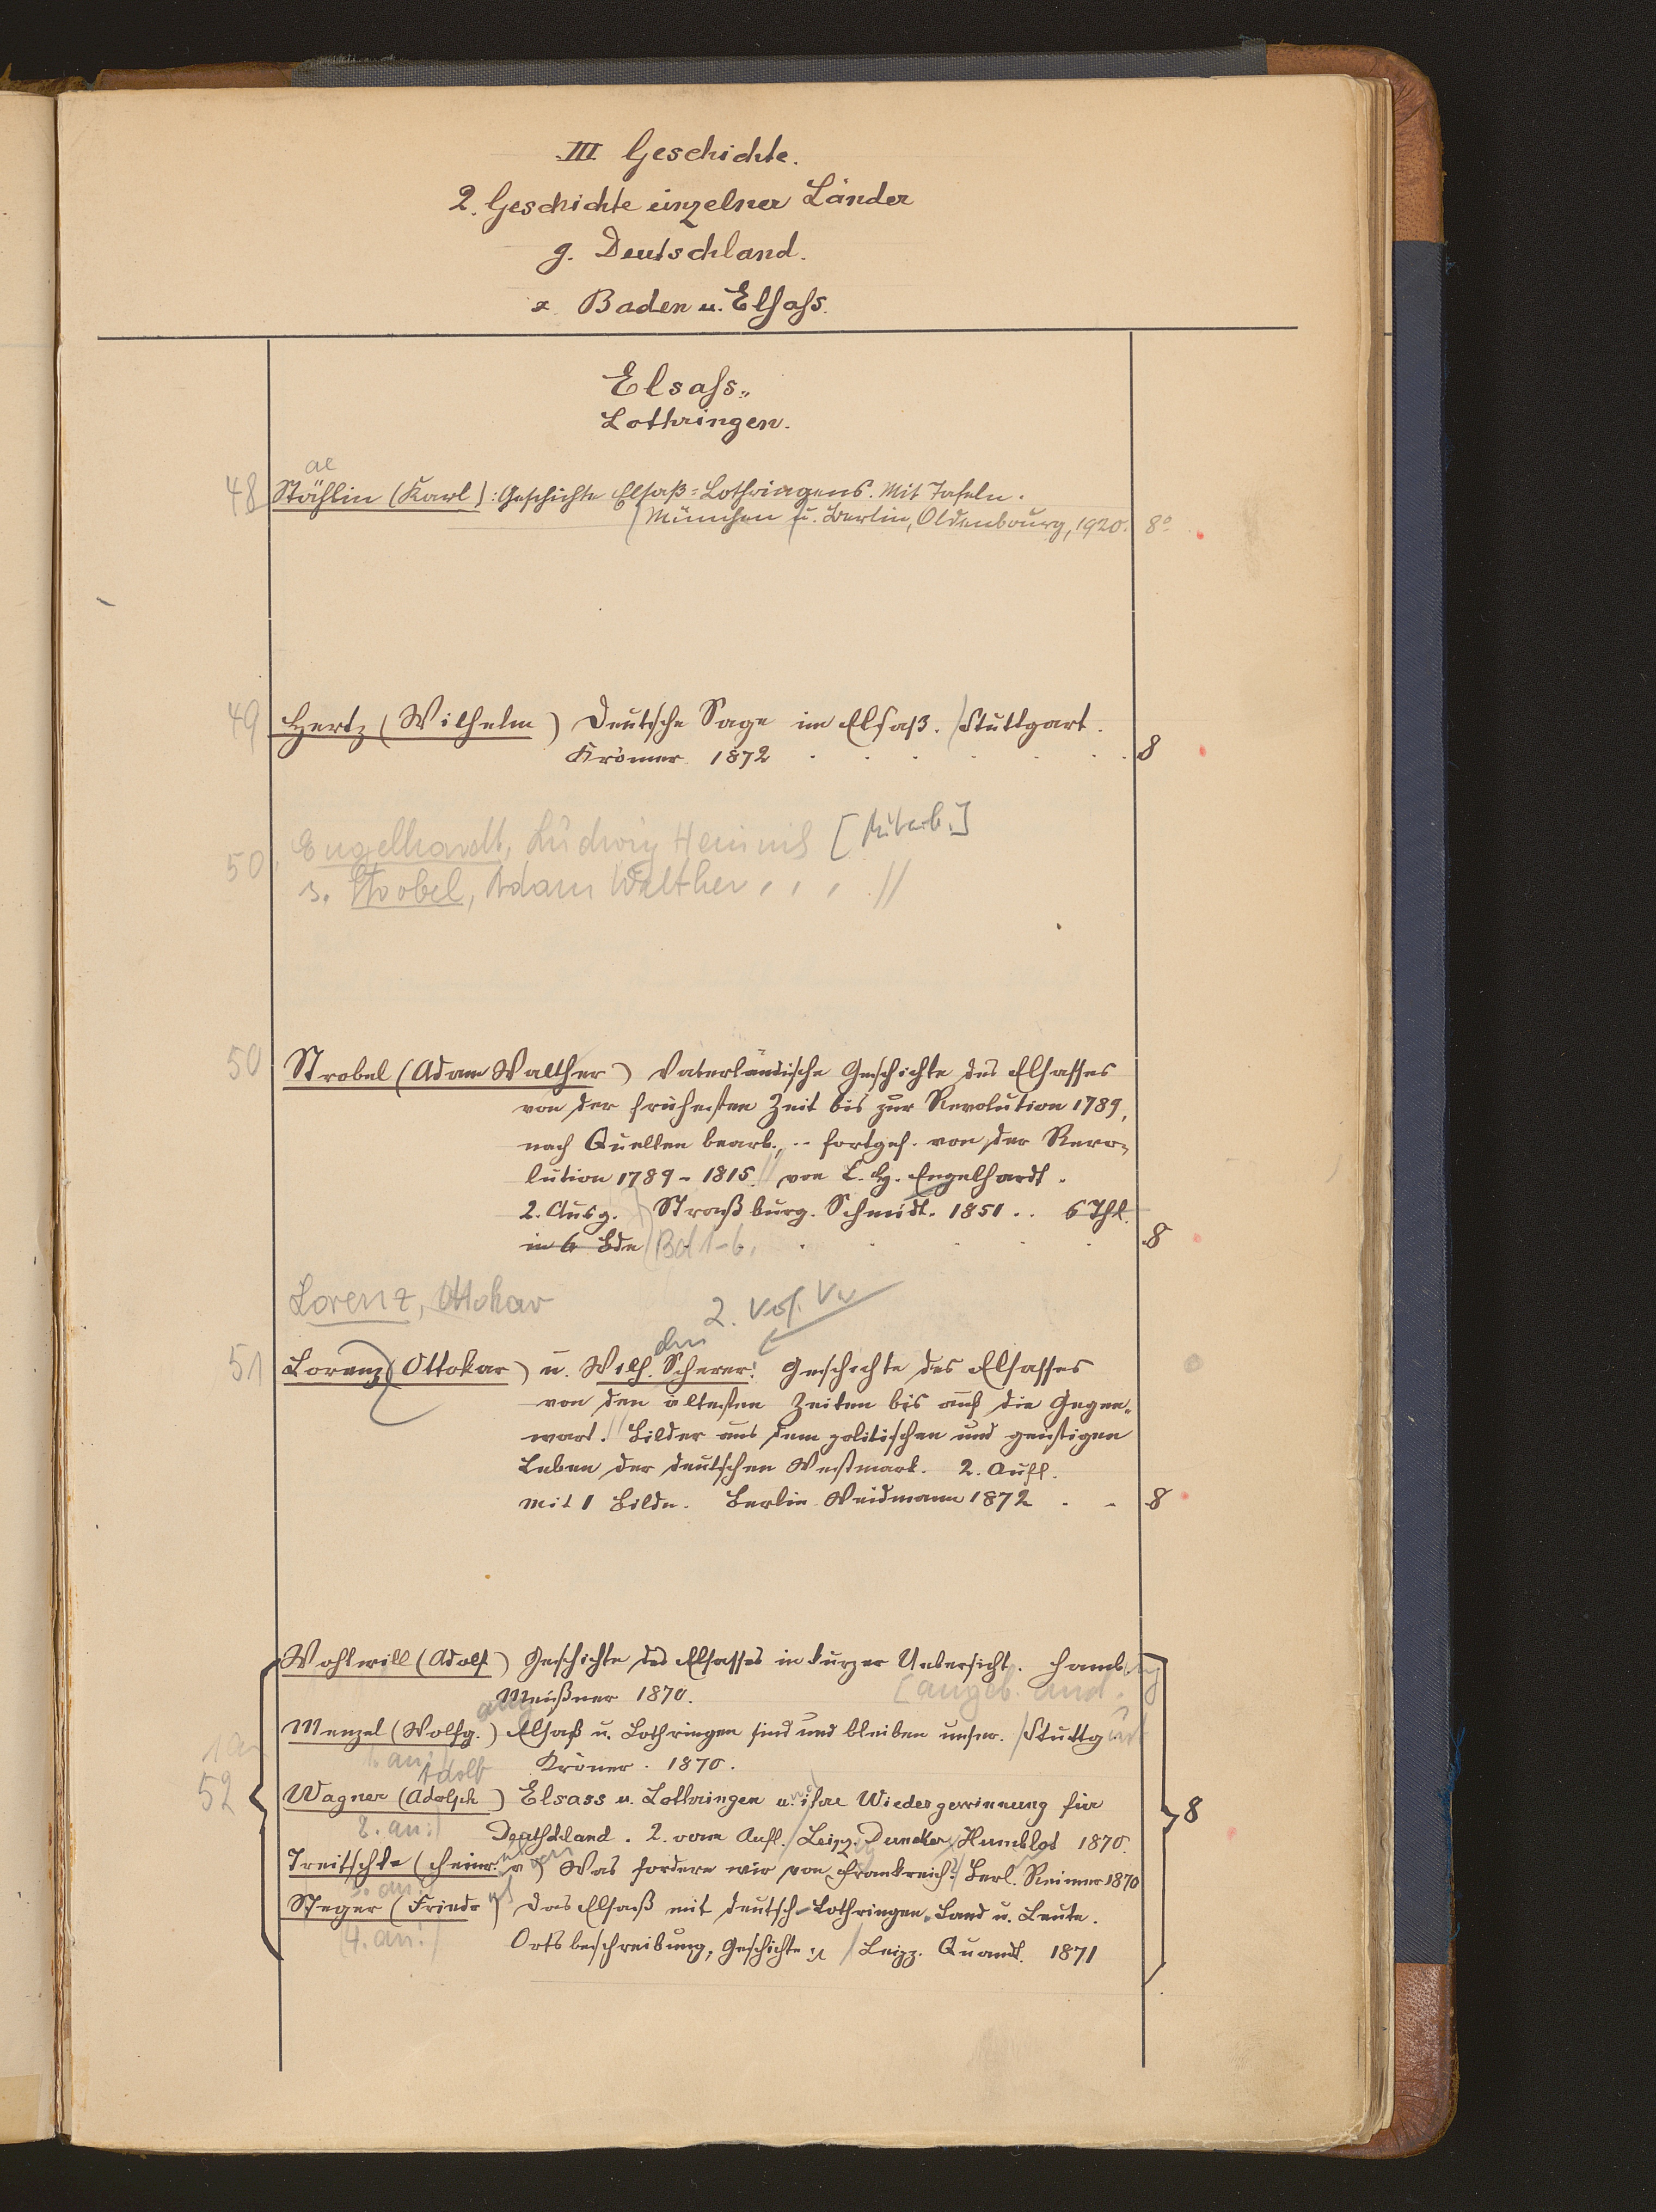 III Geschichte.
2. Geschichte einzelner Länder
g. Deutschland.
z Baden u. Elsaß.
Elsaß-
Lothringen.
ae
48 Stählin (Karl): Geschichte Elsaß-Lothringens. Mit Tafeln.
München u. Berlin, Oldenbourg, 1920. 8°
49 Hertz (Wilhelm) Deutsche Sage im Elsaß. / Stuttgart.
Kröner 1872 8
Engelhardt, Ludwig Heinrich [Mitarb.]
50 s. Strobel, Adam Walther . . . //
50 Strobel (Adam Walther) Vaterländische Geschichte des Elsasses
von der frühesten Zeit bis zur Revolution 1789,
nach Quellen bearb., .. fortges. von der Revo-
lution 1789 - 1815 // von L. H. Engelhardt.
2. Ausg. Straßburg. Schmidt. 1851 .. 6 Thl.
in 6 Bde Bd 1-6. 8
Lorenz, Ottokar
2. Vf. Vw
51 Lorenz (Ottokar) u. Wilh. Scherer: Geschichte des Elsasses
von den ältesten Zeiten bis auf die Gegen-
wart. // Bilder aus dem politischen und geistigen
Leben der deutschen Westmark. 2. Aufl.
Mit 1 Bildn. Berlin Weidmann 1872 . - 8
Wohlwill (Adolf) Geschichte des Elsasses in kurzer Uebersicht. Hambg
Meißner 1870. [angeb. sind:
Menzel (Wolfg.) Elsaß u. Lothringen sind und bleiben unser. / Stuttg
1. an:) Kröner. 1870.
Adolf
52 Wagner (Adolph) Elsass u. Lothringen u. ihre Wiedergewinnung für
2. an:) Deutschland. 2. verm Aufl. / Leipz. Duncker Humblot 1870. 8
Treitschke (Heinr. v) Was fordern wir von Frankreich? / Berl. Reimer 1870
3. an:)
Steger (Friedr) Das Elsaß mit Deutsch-Lothringen. Land u. Leute.
(4. an:) Ortsbeschreibung, Geschichte / Leipz. Quandt. 1871